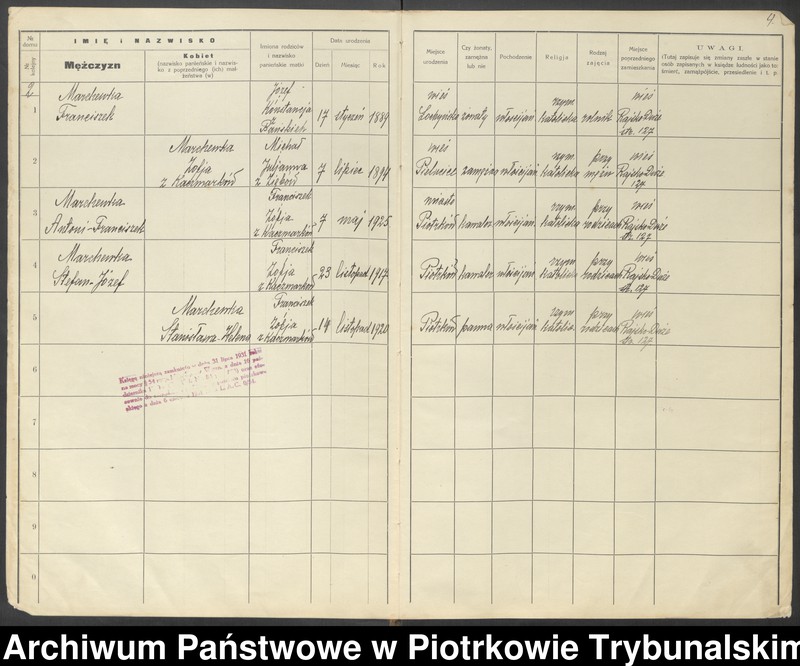 4.
№ domu
№ kolejny
IMIĘ i NAZWISKO
Mężczyzn
Kobiet
(nazwisko panieńskie i nazwis-
ko z poprzedniego (ich) mał-
żeństwa (w)
Imiona rodziców
i nazwisko
panieńskie matki
Data urodzenia
Dzień Miesiąc Rok
Miejsce
urodzenia
Czy żonaty,
zamężna
lub nie
Pochodzenie
Religja
Rodzaj
zajęcia
Miejsce
poprzedniego
zamieszkania
UWAGI
(Tutaj zapisuje się zmiany zaszłe w stanie
osób zapisanych w księdze ludności jako to:
śmierć, zamążpójście, przesiedlenie i t. p.
2
1
Marchewka
Franciszek
Józef
Konstancja
17 styczeń 1889
wieś
żonaty włościjań. rzym. katolicka rolnik
wieś
Rajsko Duże
str. 127
2
Marchewka
Zofja
z Kaczmarków
Michał
Juljanna
7 lipiec 1894
wieś
włościjań rzym. katolicka
przy
mężu
wieś
Rajsko Duże
127
3
Marchewka
Antoni-Franciszek
Franciszek
Zofja
z Kaczmarków
7 maj 1925
miasto
Piotrków kawaler włościjań. rzym. katolicka
przy
rodzicach
wieś
Rajsko Duże
str. 127
4
Marchewka
Stefan-Józef
Franciszek
Zofja
z Kaczmarków
23 listopad 1917
Piotrków kawaler włościjań rzym. katolicka
przy
rodzicach
wieś
Rajsko Duże
str. 127
5
Marchewka
Stanisława-Helena
Franciszek
Zofja
z Kaczmarków
14 listopad 1920
Piotrków panna włościjań rzym. katolic.
przy
rodzicach
wieś
Rajsko Duże
str. 127
Księgę niniejszą zamknięto w dniu 31 lipca 1931
6
7
8
9
0
Archiwum Państwowe w Piotrkowie Trybunalskim